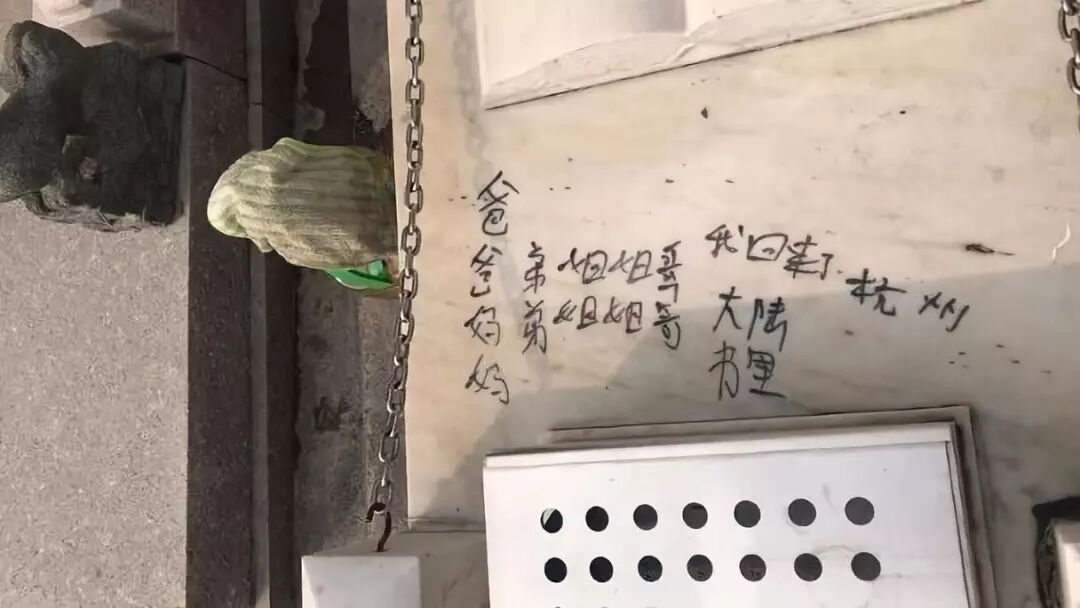 爸爸妈妈
弟弟
姐姐
姐姐
哥哥
我回来了
杭州
大陆